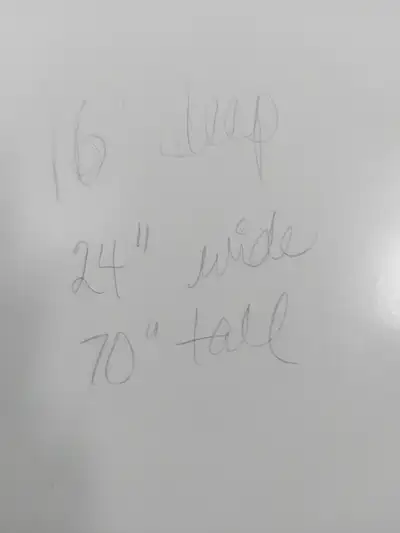 16" deep
24" wide
70" tall